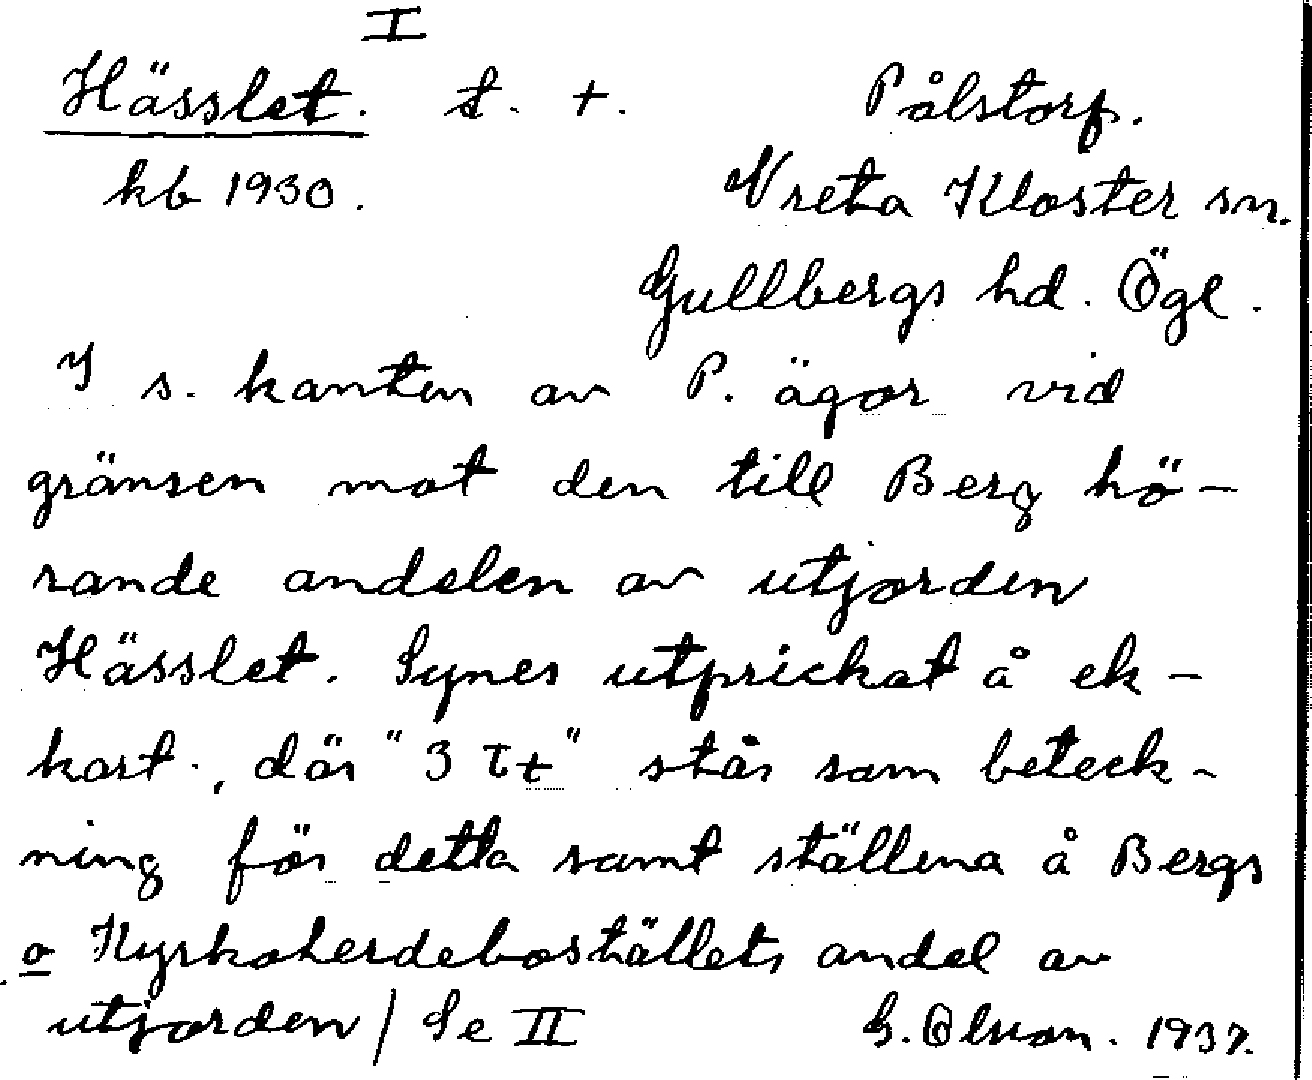 I
Hässlet. t. +. Pålstorp.
kb 1930. Vreta Kloster sn.
Gullbergs hd. Ögl.
I s. kanten av P. ägor vid
gränsen mot den till Berg hö-
rande andelen av utjorden
Hässlet. Synes utprickat å ek-
kart., där "3 Tt" står som beteck-
ning för detta samt ställena å Bergs
o Kyrkoherdeboställets andel av
utjorden / Se II G. Olson. 1937.